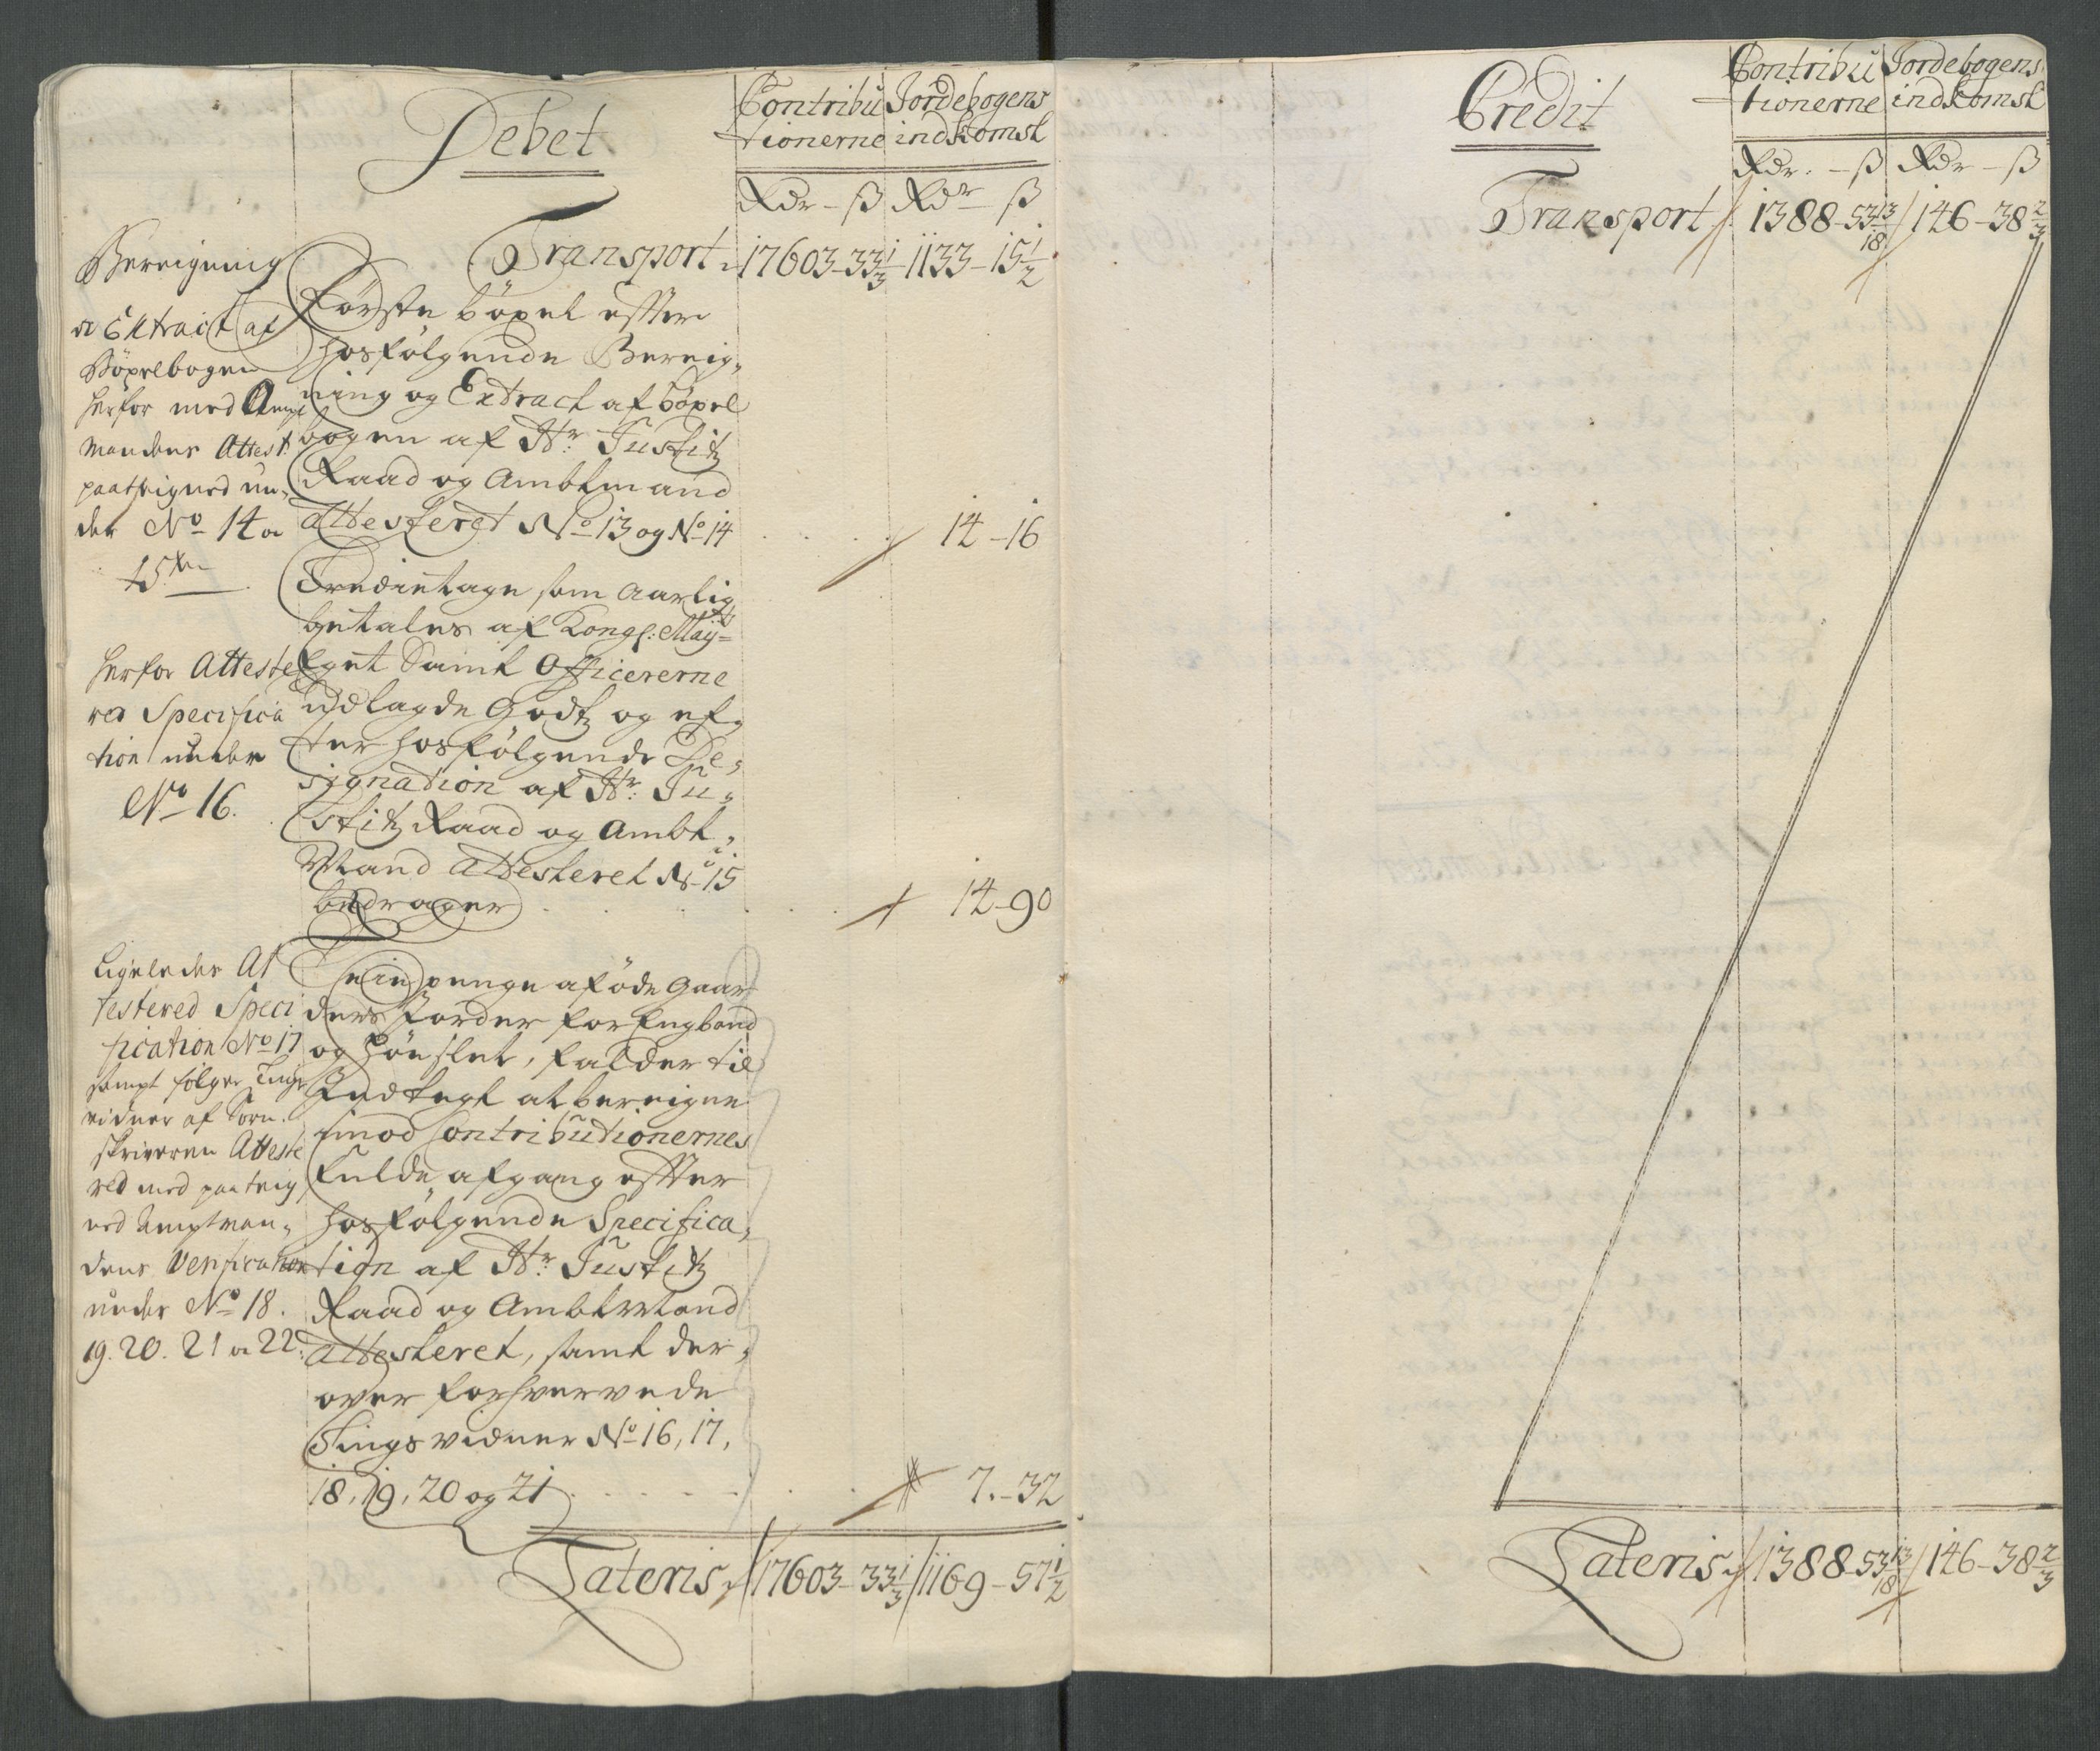 Debet
Contribu Jordebogens
tionerne indkomst
Rdr – ß Rdr – ß
Transport 17603–33 1/3 1133–15 1/2
Bereigning
og Extract af
Böxelbogen
herfor med Ampt
Mandens Attest
paateigned un„
der No 14 og
15ten
Förste böxel efter
hosfölgende Bereig„
ning og Extract af böxel
bogen af Hr: Justitz
Raad og Ambtmand
Attesteret No 13 og No 14 14–16
herfor Atteste
red Specifica
tion under
No 16.
Tredietage som Aarlig
betales af Kongl: Mayts
Eget Samt Officererne
udlagde Godtz og ef„
ter hosfölgende De„
signation af Hr: Ju„
stitz Raad og Ambt„
Mand Attesteret No 15
bedrager 14–90
Ligeleder At
testered Speci
fication No 17
sampt fölger Tings
vidner af Soren
skriveren Atteste
red med paateig
ned Amptman„
dens Verification
under No 18.
19. 20. 21 og 22.
penge af öde Gaar
ders Jorder for Engbond
og hönslet, falder til
Indtegt at bereigne
imod Contributionernes
fulde afgang efter
hosfölgende Specifica„
tion af Hr: Justitz
Raad og AmbtMand
Attesteret, samt der„
over forhvervede
Tingsvidner No 16, 17,
18, 19, 20 og 21 7.–32
Lateris 17603–33 1/3 1169–57 1/2
Credit
Contribu Jordebogens
tionerne indkomst
Rdr. – ß Rdr – ß
Transport 1388–53 13/18 146–38 2/3
Lateris 1388–53 13/18 146–38 2/3